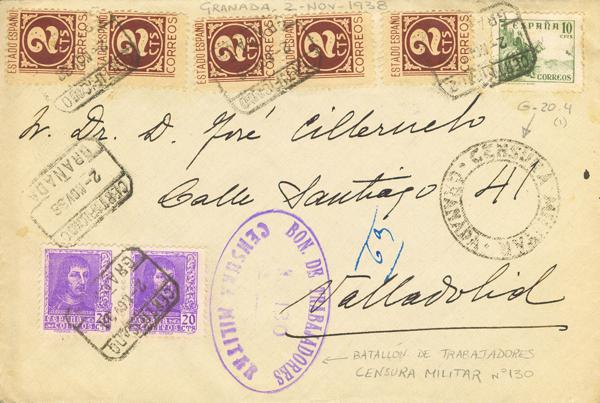 GRANADA. 2-NOV-1938
ESTADO ESPAÑOL 2 CTS CORREOS
ESTADO ESPAÑOL 2 CTS CORREOS
ESTADO ESPAÑOL 2 CTS CORREOS
ESTADO ESPAÑOL 2 CTS CORREOS
ESTADO ESPAÑOL 2 CTS CORREOS
ESPAÑA 10
CTS
CORREOS
G-20.4
(1)
Dr. D. José Cilleruelo
Calle Santiago 41
Valladolid
63
CERTIFICADO
2-NOV.38
GRANADA
CENSURA MILITAR
GRANADA
BON. DE TRABAJADORES
130
CENSURA MILITAR
20
CORREOS CTS
BATALLÓN DE TRABAJADORES
CENSURA MILITAR Nº 130